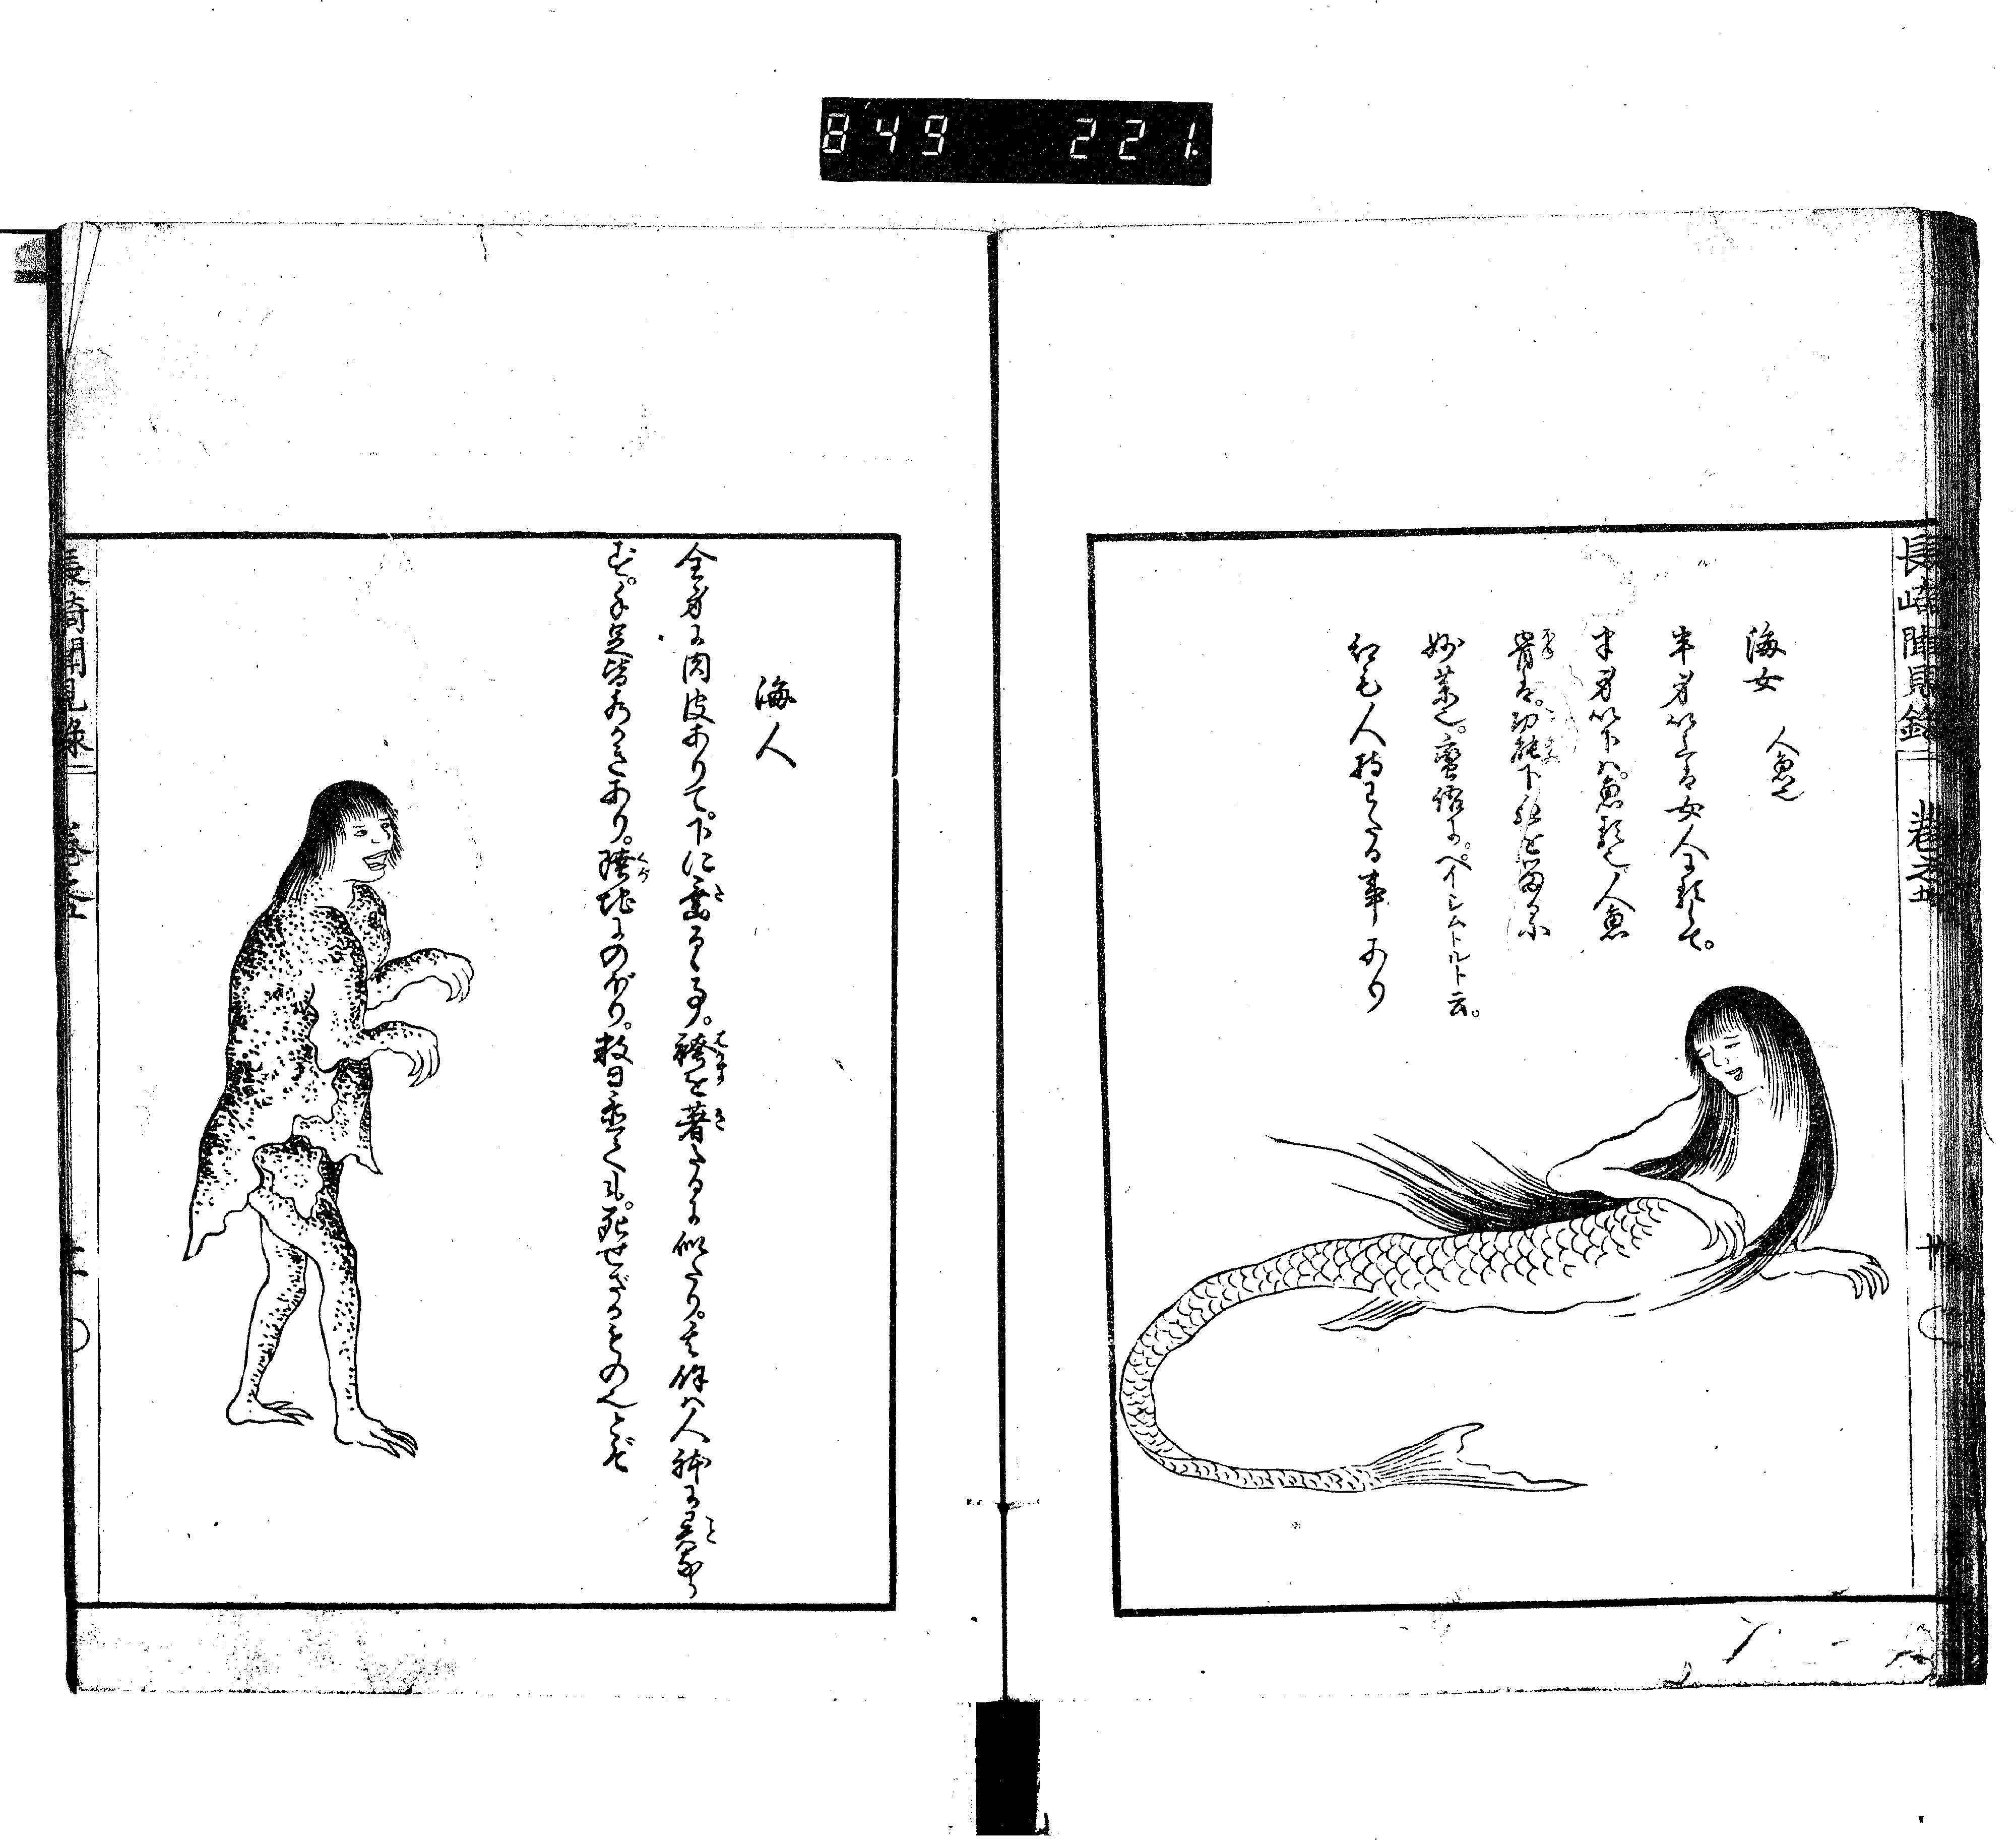 849 221.
長崎聞見録 巻之五 廿
海女 人魚也
半身以上は女人の類にて。
半身以下ハ。魚類也。人魚
骨は。功能下血を留るに
妙薬也。蛮語に。ペイシムトルト云。
紅毛人持わたる事あり
海人
全身に肉皮ありて。下に垂るゝ事。袴を著たるに似たり。其餘ハ人体に異なら
ず。手足皆水かきあり。陸地にのぼり。数日歴ても。死せざるものなりとぞ
長崎聞見録 巻之五